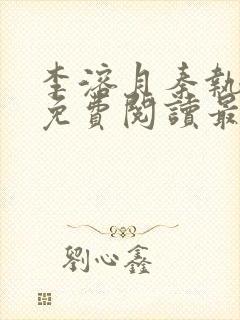 李溶月秦執
免費閱讀最
劉心鑫